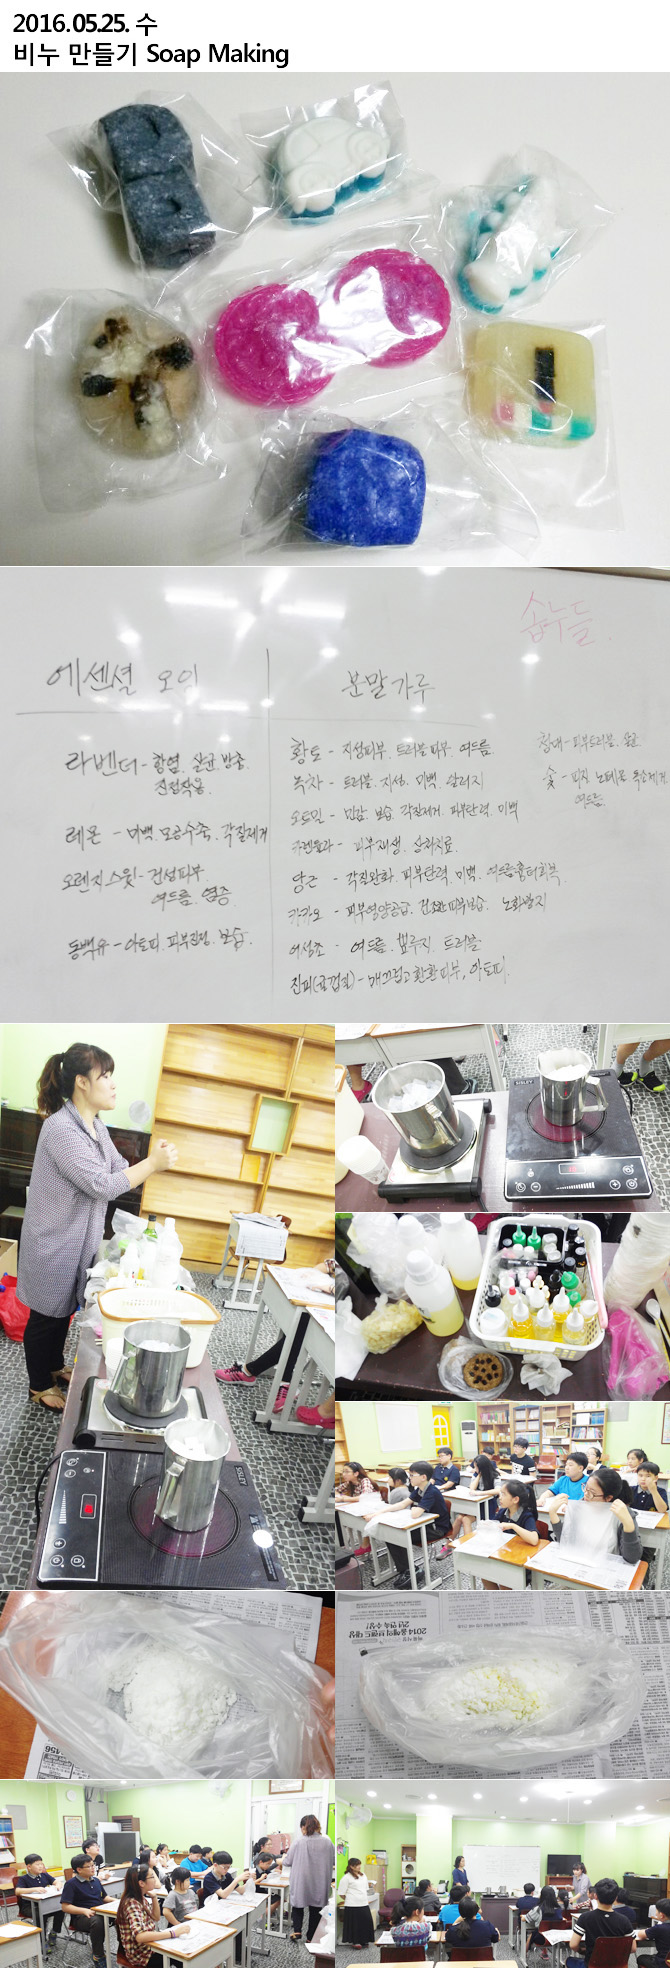 2016.05.25. 수
비누 만들기 Soap Making
솝누들.
에센셜 오일
분말가루
라벤더 - 항염. 살균. 방충.
진정작용.
레몬 - 미백. 모공수축. 각질제거
오렌지스윗 - 건성피부.
여드름. 염증
동백유 - 아토피. 피부진정. 보습.
황토 - 지성피부. 트러블피부. 여드름.
녹차 - 트러블. 지성. 미백. 알러지
오트밀 - 민감. 보습. 각질제거. 피부탄력. 미백
카렌듈라 - 피부재생. 상처치료.
당근 - 각질완화. 피부탄력. 미백. 여드름흉터회복
카카오 - 피부영양공급. 건조한 피부보습. 노화방지
어성초 - 여드름. 뾰루지. 트러블
진피(귤껍질) - 매끄럽고 환한 피부, 아토피.
청대 - 피부트러블. 살균
숯 - 피지. 노폐물. 독소제거.
여드름.
2014 올해의 브랜드 대상
2년 연속 수상!